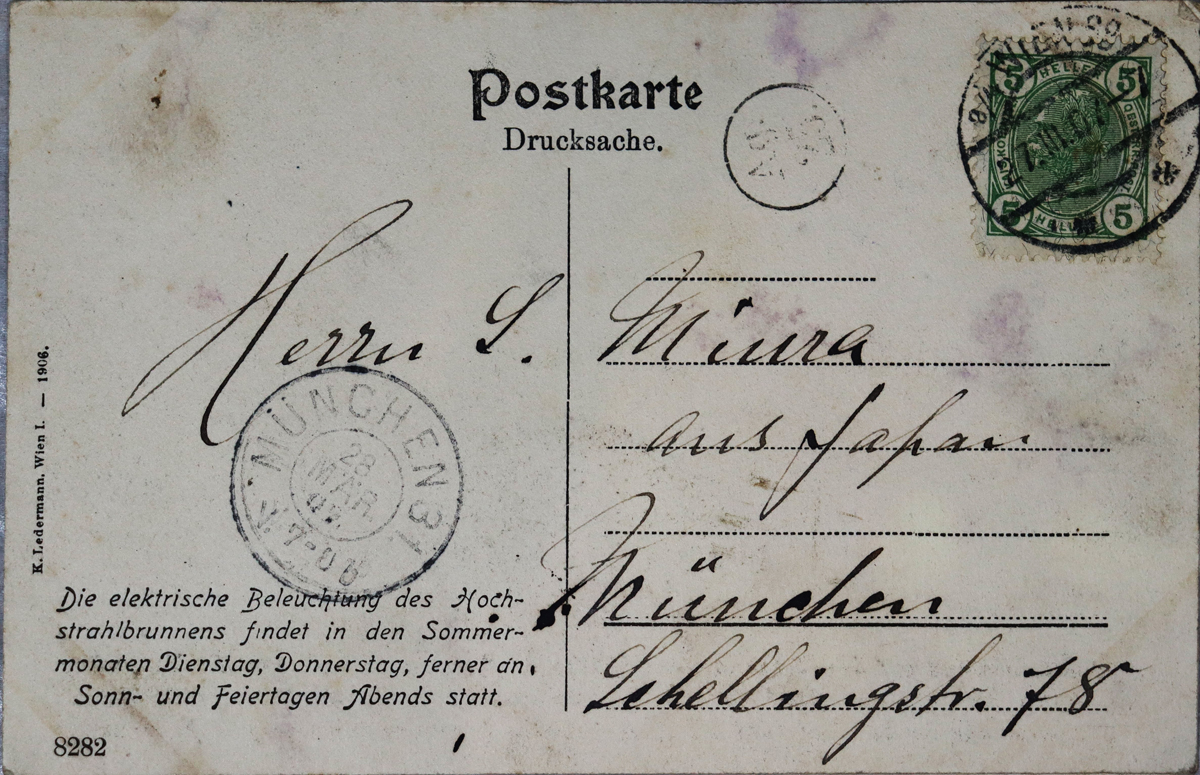 Postkarte
Drucksache.
HELLER
5 5
5 5
HELLER
Herrn S. Miura
aus Japan
München
Schellingstr. 78
MÜNCHEN 31
MÄR.
7-8
K. Ledermann, Wien I. — 1906.
Die elektrische Beleuchtung des Hoch-
strahlbrunnens findet in den Sommer-
monaten Dienstag, Donnerstag, ferner an
Sonn- und Feiertagen Abends statt.
8282